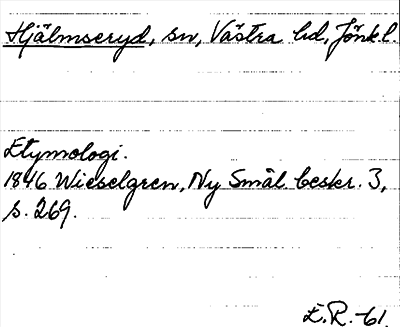 Hjälmseryd, sn, Västra hd, Jönk l.
Etymologi.
1846 Wieselgren, Ny Smål. beskr. 3,
s. 269.
E.R. -61.